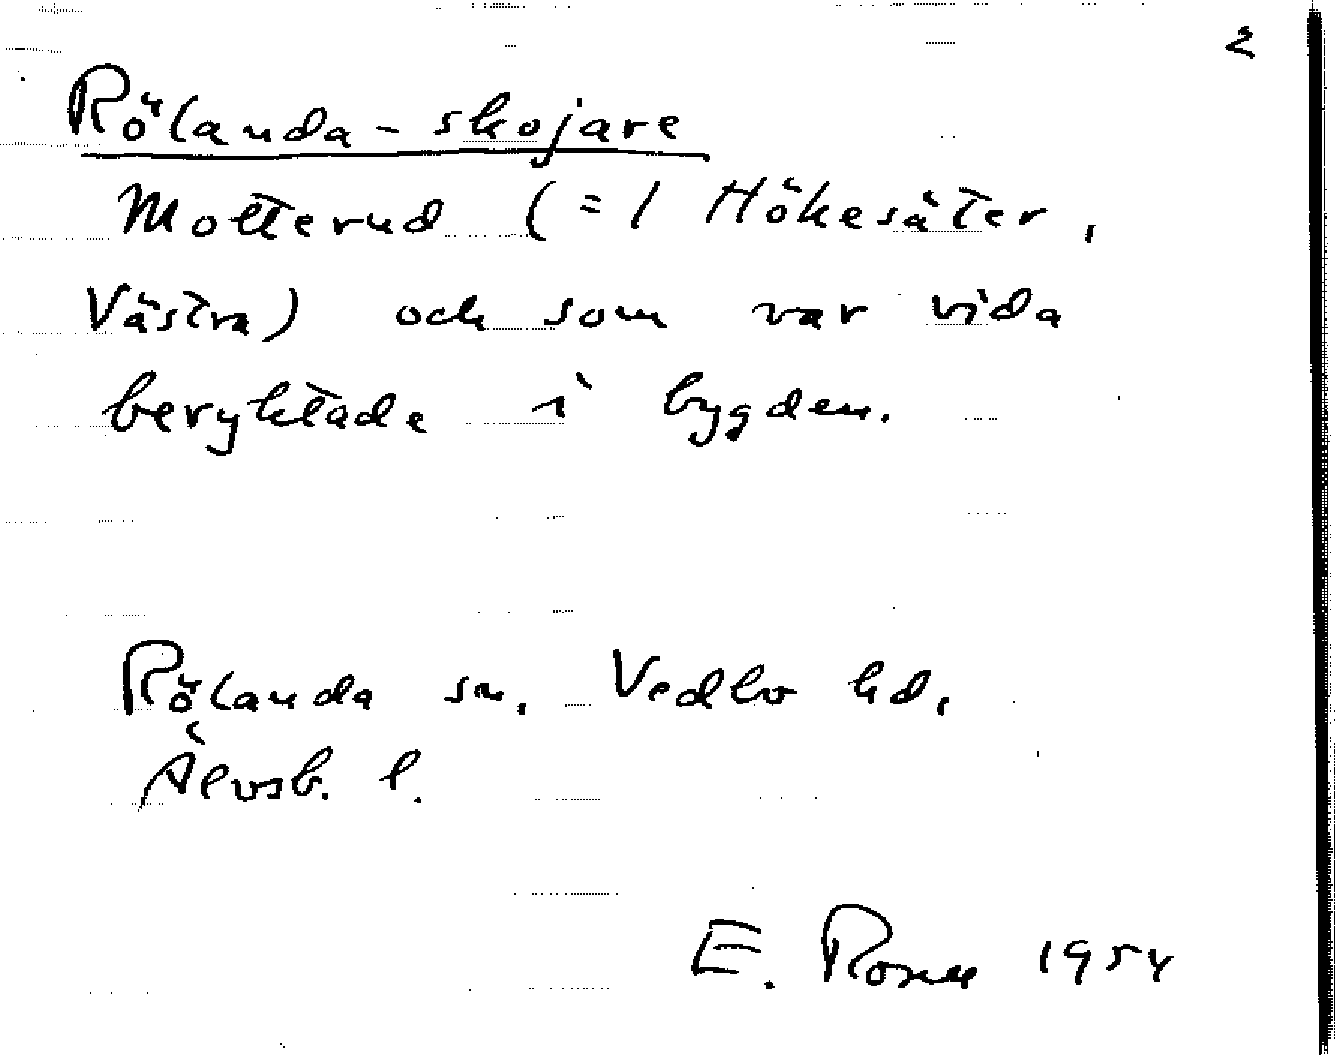 2
Rölanda-skojare
Motterud (= 1 Hökesäter,
Västra) och som var vida
beryktade i bygden.
Rölanda sn. Vedbo hd.
Älvsb. l.
E. Rosen 1954